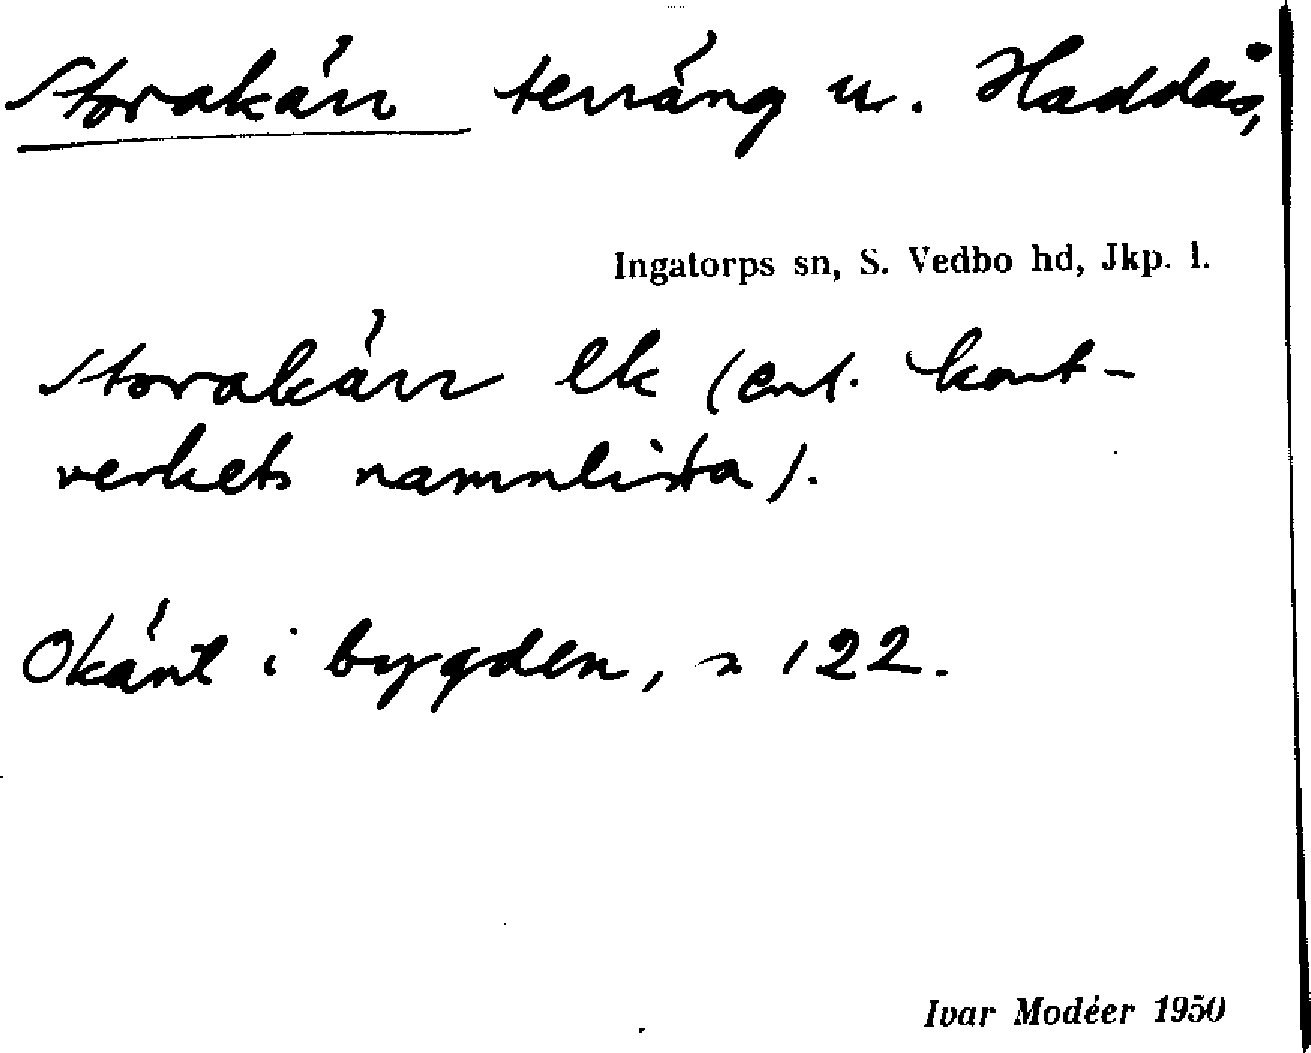 Storakärr terräng u. Haddås,
Ingatorps sn, S. Vedbo hd, Jkp. l.
Storakärr Ek (enl. kart-
verkets namnlista).
Okänt i bygden, s 122.
Ivar Modéer 1950